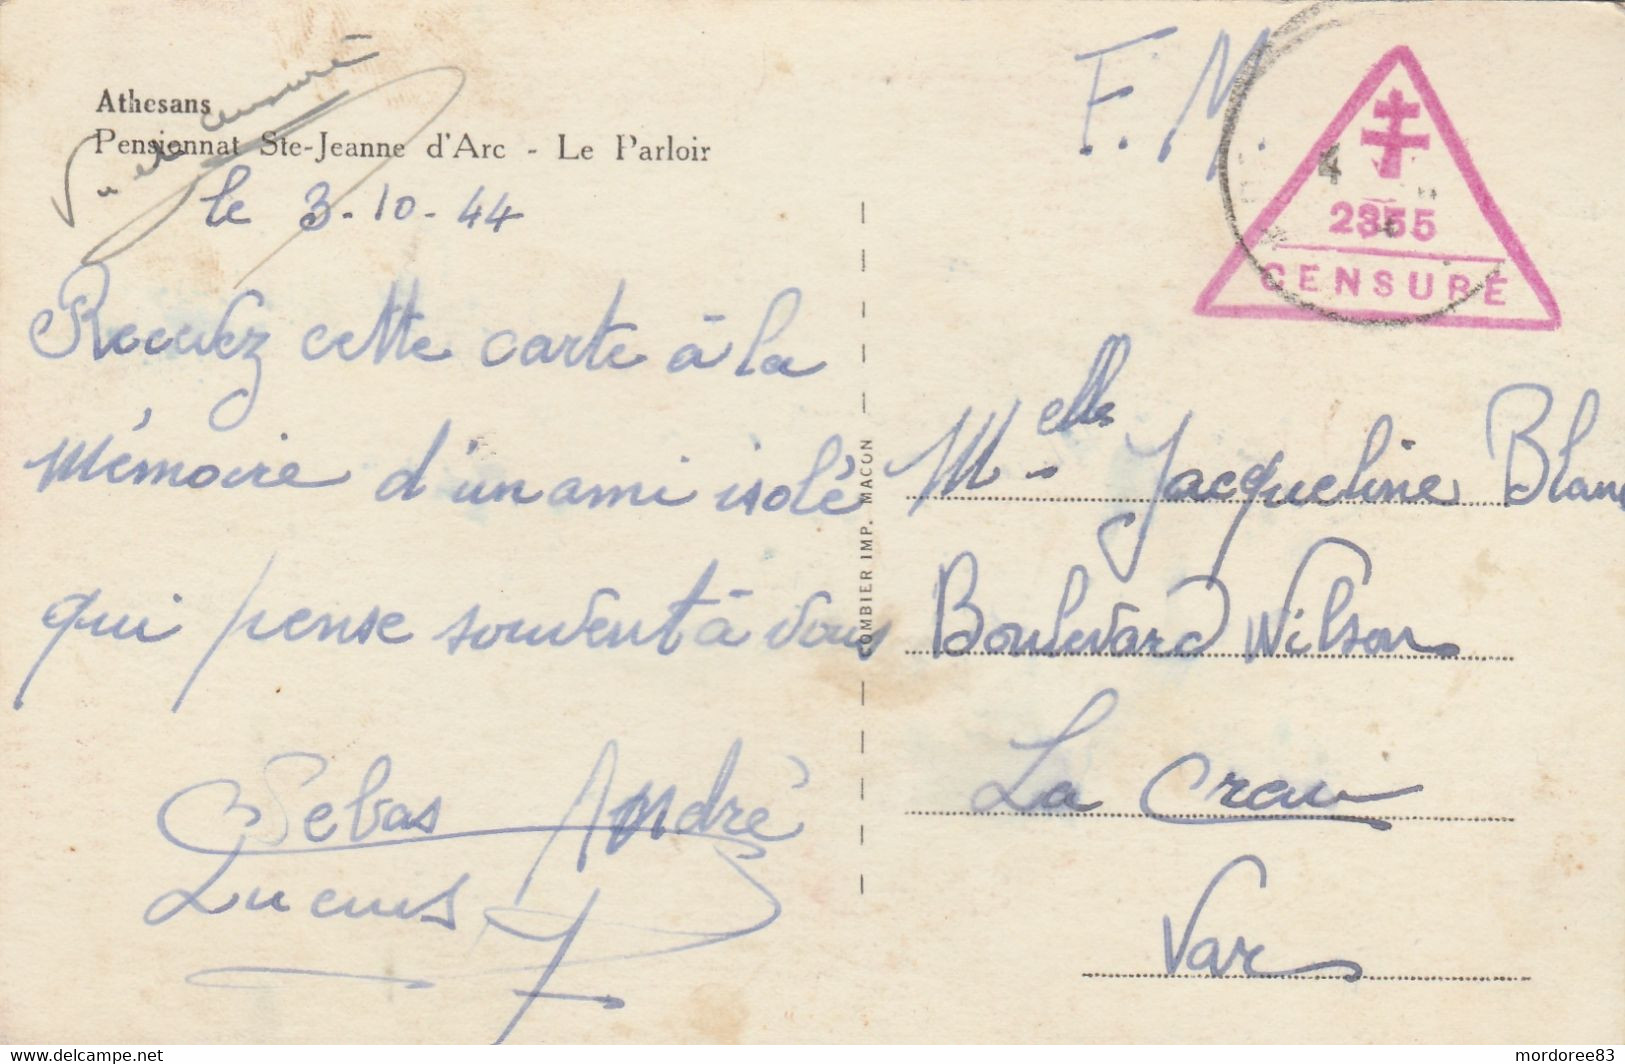 Athesans
Pensionnat Ste-Jeanne d'Arc - Le Parloir
censuré
le 3-10-44
Recevez cette carte à la
Mémoire d'un ami isolé
qui pense souvent à vous
Sebas André
COMBIER IMP. MACON
F.M.
4
2355
CENSURÉ
Melle Jacqueline Blanc
Boulevard Wilson
La Crau
Var
www.delcampe.net
mordoree83